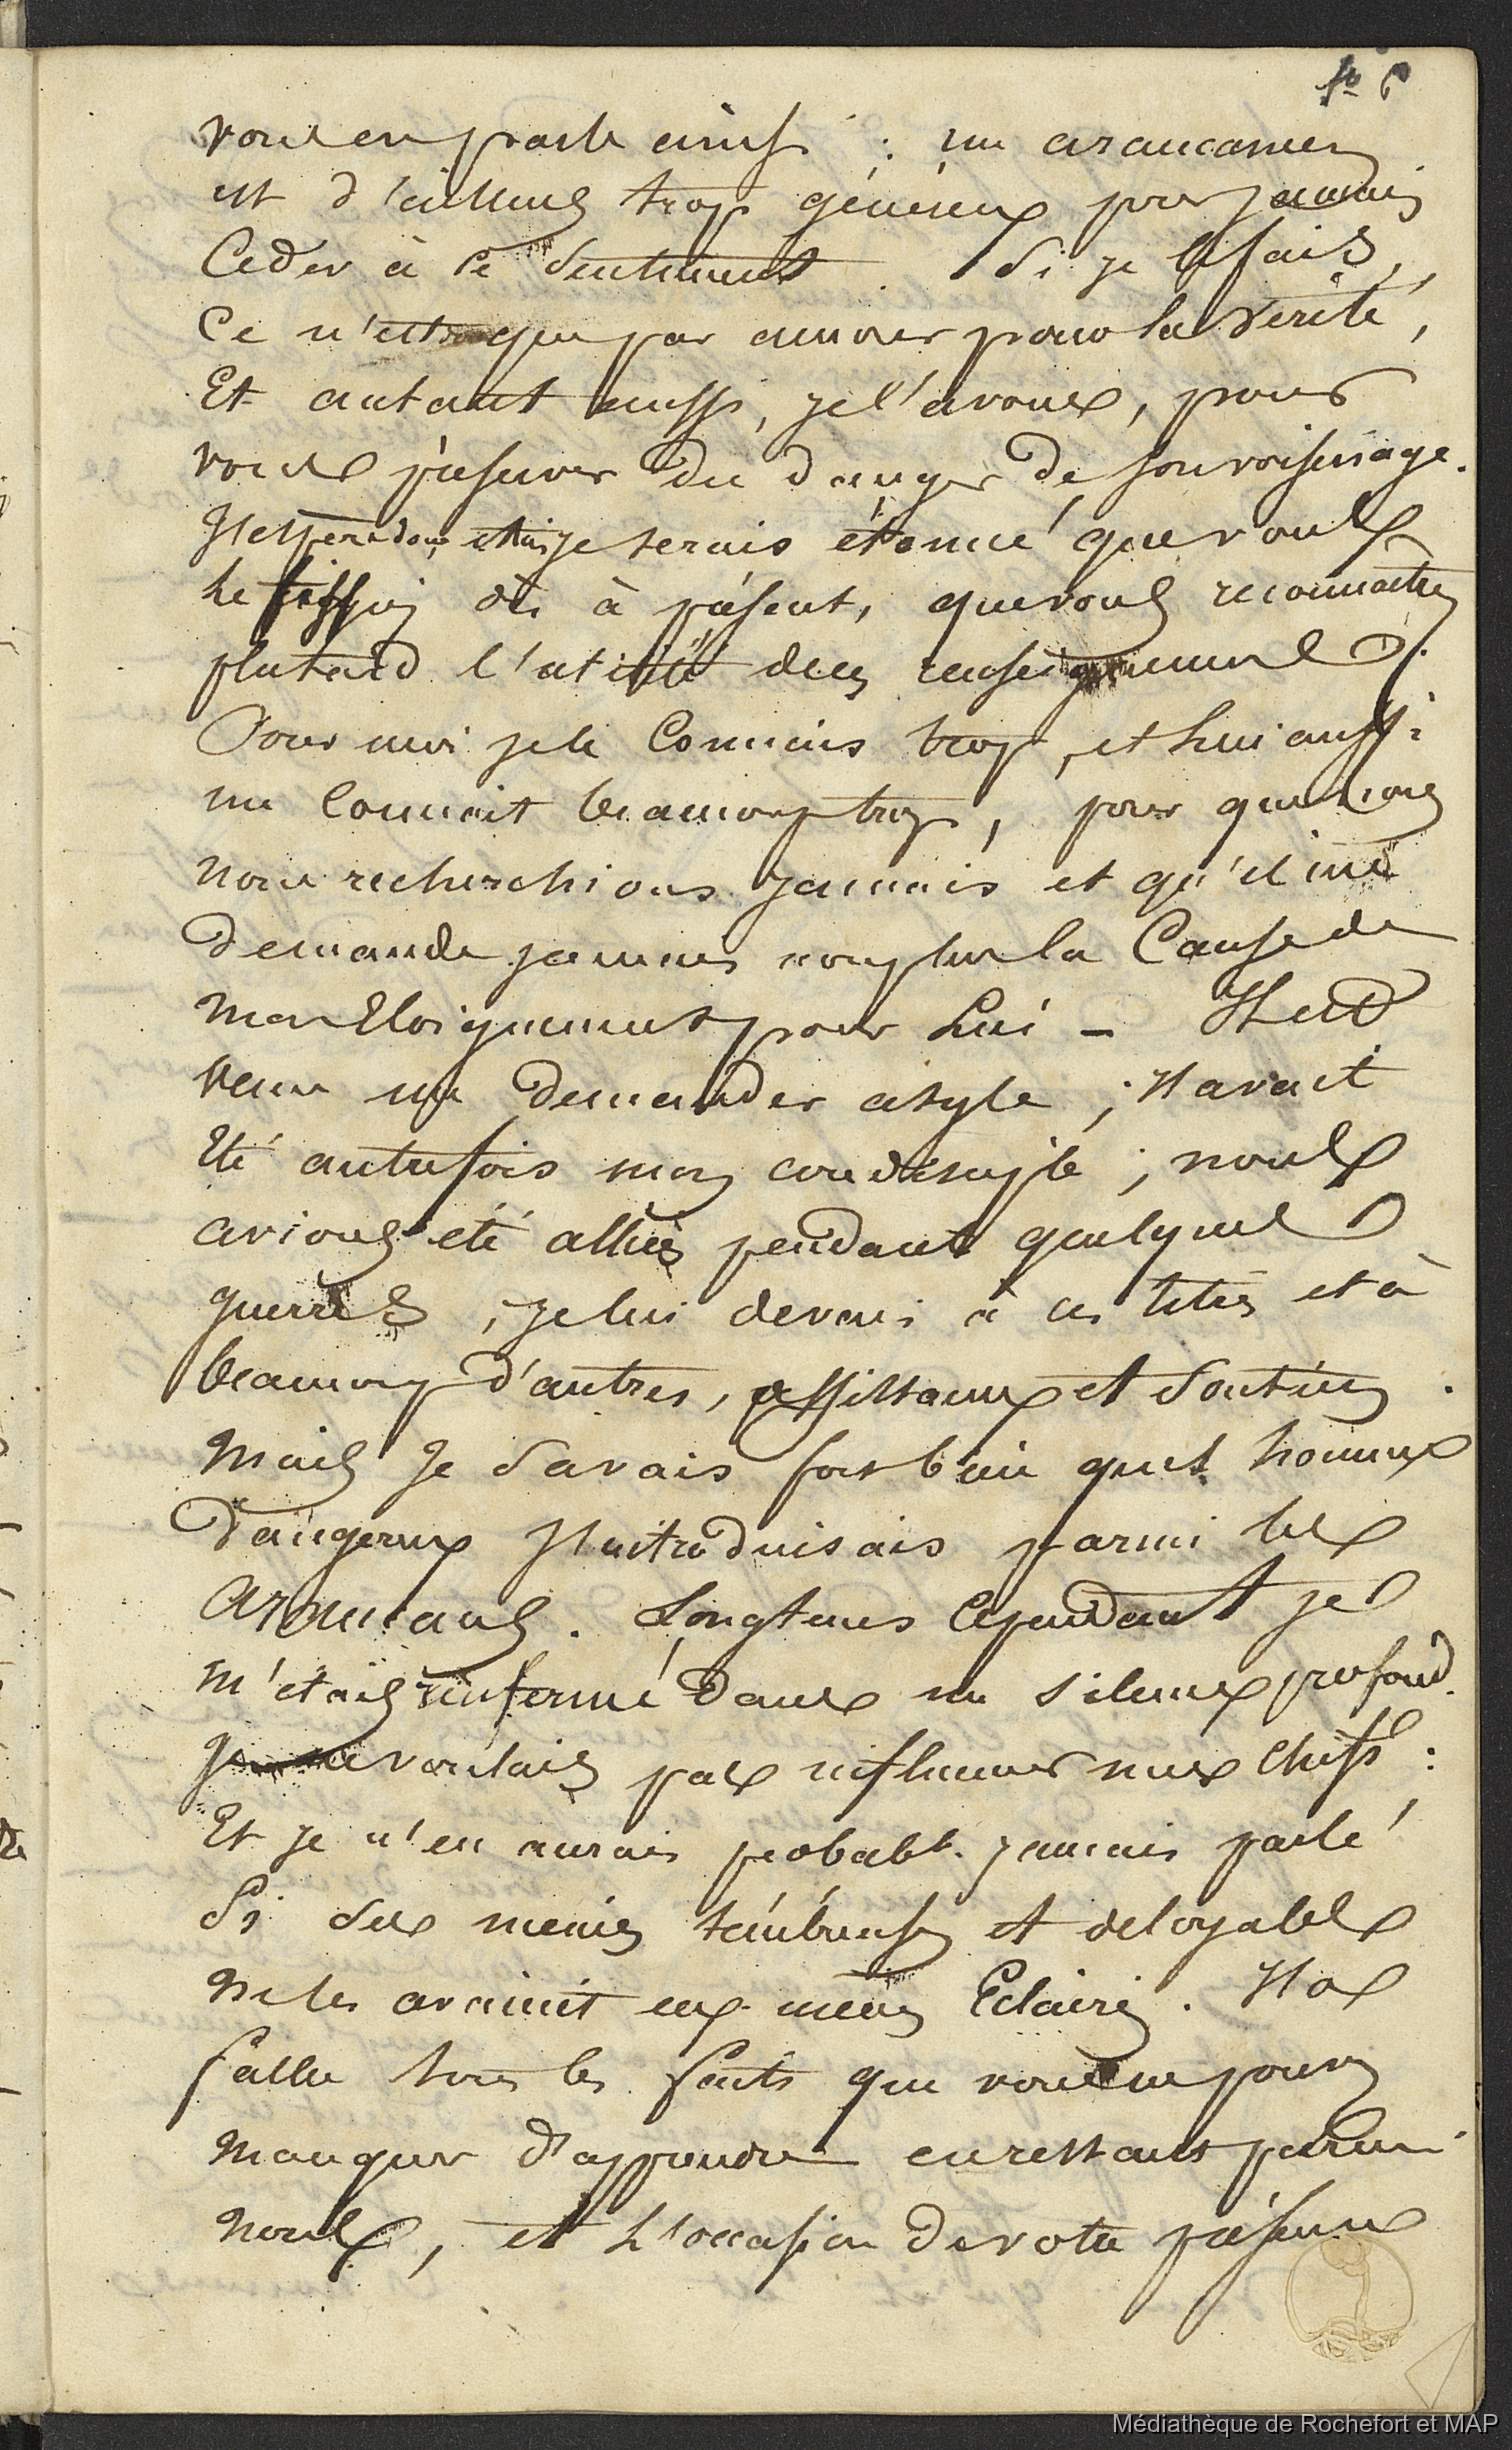 f° 6
vous en parle ainsi : un araucanien
est d'ailleurs trop généreux pour jamais
Ceder à ce Sentiment. Si je le fais,
Ce n'est que par amour pour la Verité,
Et autant aussi, je l'avoue, pour
vous préserver du danger de son voisinage.
je serais étonné que vous
le dès à présent, que vous reconnaitrez
plutard l'utilité de ces renseignemens.
Pour moi je le Connais trop, et lui aussi
me Connait beaucoup trop, pour que nous
nous recherchions jamais et qu'il me
demande jamais non plus la Cause de
mon Eloignement pour Lui - Il est
venu me demander asyle ; Il avait
Eté autrefois mon condisciple ; nous
avions été alliés pendant quelques
guerres ; je lui devais à ces titres et à
beaucoup d'autres, assistance et Soutien.
Mais Je Savais fort bien quel homme
Dangereux J'introduisais parmi les
Araucans. Longtems Cependant je
m'étais renfermé dans un silence profond.
Je ne voulais pas influencer mes Chefs :
Et je n'en aurais probablt. jamais parlé
Si Ses menées ténébreuses et deloyales
Ne les avaient eux-mêmes Eclairés. Il a
fallu tous les faits que vous ne pouvez
Manquer d'apprendre en restant parmi
Nous, et L'occasion de votre présence
Médiathèque de Rochefort et MAP